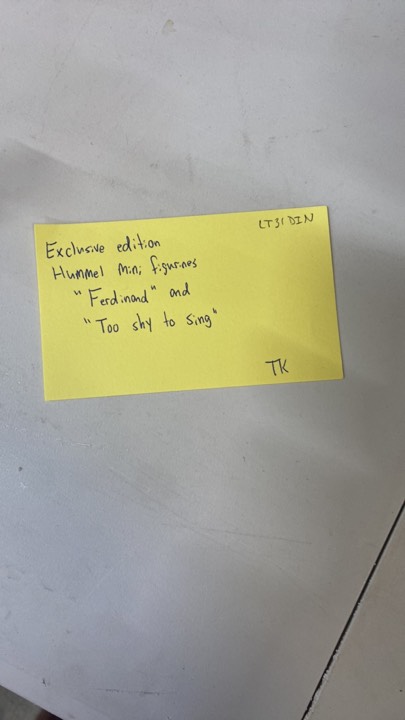 LT31 DIN
Exclusive edition
Hummel Mini figurines
"Ferdinand" and
"Too shy to sing"
TK